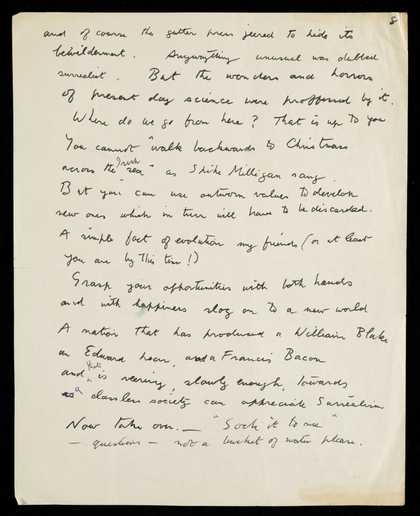 8
and of course the gutter press jeered to hide its
bewilderment. Anything unusual was dubbed
surrealist. But the wonders and horrors
of present day science were proffered by it.
Where do we go from here? That is up to you
You cannot "walk backwards to Christmas
across the Irish sea" as Spike Milligan sang.
But you can use outworn values to develop
new ones which in turn will have to be discarded.
A simple fact of evolution my friends (or at least
you are by this time!)
Grasp your opportunities with both hands
and with happiness slog on to a new world
A nation that has produced a William Blake
an Edward Lear, and a Francis Bacon
and is veering, slowly enough, towards
a classless society can appreciate Surrealism
Now take over. — "Sock it to me"
— questions — not a bucket of water please.